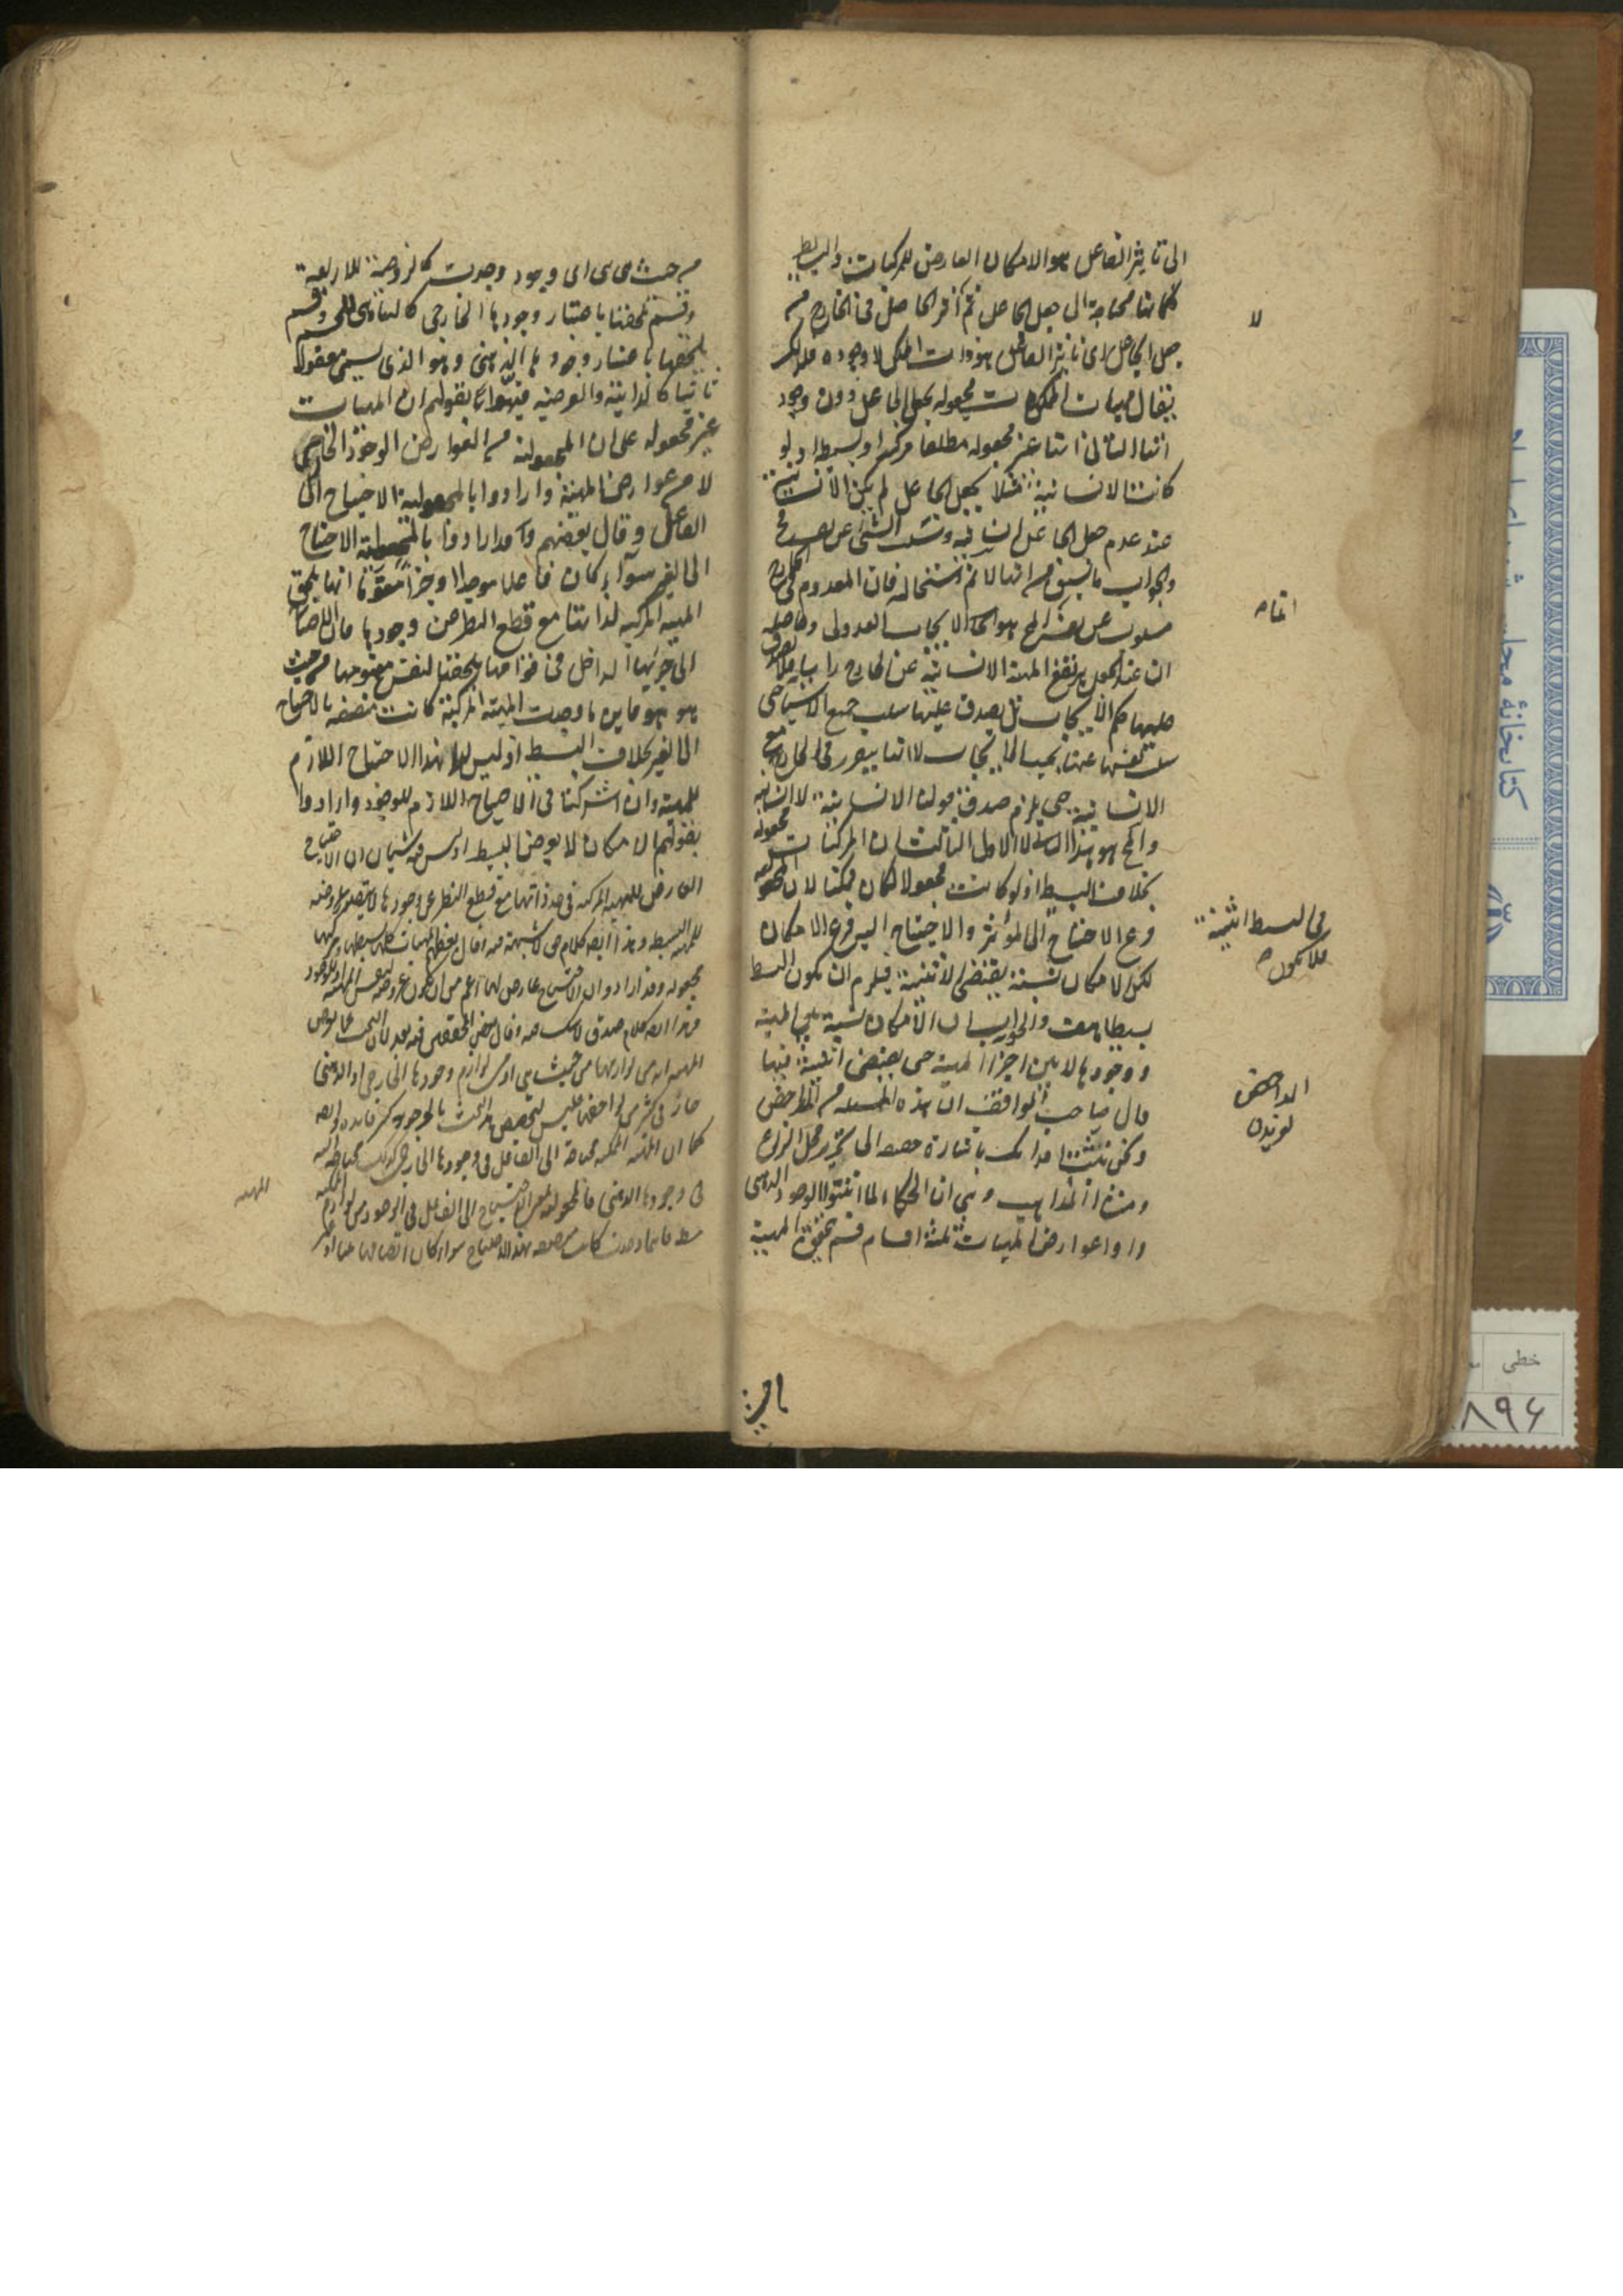 الى تاثير الفاعل هو الامكان العارض للمركبات والبسايط
فكلها محتاجة الى جعل الجاعل ثم اثر الحاصل فى الخارج من
جعل الجاعل اى تاثير الفاعل هو ذات الممكن لا وجوده
فيقال مهيات الممكنات مجعولة بجعل الجاعل دون وجود
اتها الثانى انها غير مجعولة مطلقا مركبها وبسيطها اذ لو
كانت الانسانية مثلا بجعل الجاعل لم يكن الانسانية
عند عدم جعل الجاعل انسانية وسلب الشىء عن نفسه مح
والجواب ما سبق من انها لا نم استحالته فان المعدوم فى الخارج
مسلوب عن نفسه انما المح هو الايجاب العدولى وحاصله
ان عند العدم يرتفع المهية الانسانية عن الخارج راسا
عليها حكم الايجاب بل يصدق عليها سلب جميع الاشياء حتى
سلب نفسها عنها بحسب الخارج لا انها يتقرر فى الخارج مع
الانسانية حتى يلزم صدق قولنا الانسانية لا انسانية
والمح هو هذا الثانى لا الاول الثالث ان المركبات مجعولة
بخلاف البسيط اذ لو كانت مجعولا لكان ممكنا لان المجعولية
فرع الاحتياج الى المؤثر والاحتياج اليه فرع الامكان
لكن الامكان نسبة يقتضى الاثنينية فيلزم ان يكون البسيط
بسيطا هف والجواب ان الامكان نسبة بين المهية
ووجودها لا بين اجزاء المهية حتى يقتضى اثنينية فيها
قال صاحب المواقف ان هذه المسئلة من المداحض
ونحن نثبت اقدامك باشارة خفيفة الى تحرير محل النزاع
ومنشا المذاهب وهى ان الحكماء لما اثبتوا الوجود الذهنى
راوا عوارض المهيات ثلثة اقسام قسم يلحق المهية
لا
انها
فى البسيط اثنينية
فلا يكون
المداحض
لغزيدن
ماهية
من حيث هى هى اى وجود وجدت كالزوجية للاربعة
وقسم يلحقها باعتبار وجودها الخارجى كالتناهى للجسم وقسم
يلحقها باعتبار وجودها الذهنى وهو الذى يسمى معقولا
ثانيا كالذاتية والعرضية فنبهوا بقولهم ان المهيات
غير مجعولة على ان المجعولية من العوارض الوجود الخارجى
لا من عوارض المهية وارادوا بالمجعولية الاحتياج الى
الفاعل وقال بعضهم وقد ارادوا بالمجعولية الاحتياج
الى الغير سواء كان فاعلا موجدا او جزءا مقوما انها يلحق
المهية المركبة لذاتها مع قطع النظر عن وجودها فان الاحتياج
الى جزئها الداخل فى قوامها يلحقها لنفس مفهومها من حيث
هو هو فاين ما وجدت المهية المركبة كانت متصفة بالاحتياج
الى الغير بخلاف البسيط اذ ليس لها هذا الاحتياج اللازم
للمهية وان اشتركتا فى الاحتياج اللازم للوجود وارادوا
بقولهم الامكان لا يعرض البسيط اذ ليس فيه شيئان ان الاحتياج
العارض للمهية المركبة فى حد ذاتها مع قطع النظر عن وجودها لا يتصور عروضه
للمهية البسيطة وهذا ايضا كلام حق لا شبهة فيه وقال بعضهم المهيات كلها بسيطها ومركبها
مجعولة وقد ارادوا ان الاحتياج عارض لها اعم من ان يكون عروضه لنفس المهية او للوجود
وهذا ايضا كلام صدق لا شك فيه وقال بعض المحققين فيه بعد لان البحث عما يعرض
المهية انه من لوازمها من حيث هى او من لوازم وجودها الخارجى او الذهنى
جار فى كثير من لواحقها فليس لتخصيص هذا البحث بالوجود كثير فايدة وايضا
كما ان المهية الممكنة محتاجة الى الفاعل فى وجودها الخارجى كذلك محتاجة اليه
فى وجودها الذهنى فالمجعولية بمعنى الاحتياج الى الفاعل فى الوجود من لوازم المهية الممكنة
مط فاينما وجدت كانت متصفة بهذا الاحتياج سواء كان اتصافها
المهية
كتابخانه مجلس شورای
خطی
۸۹۶